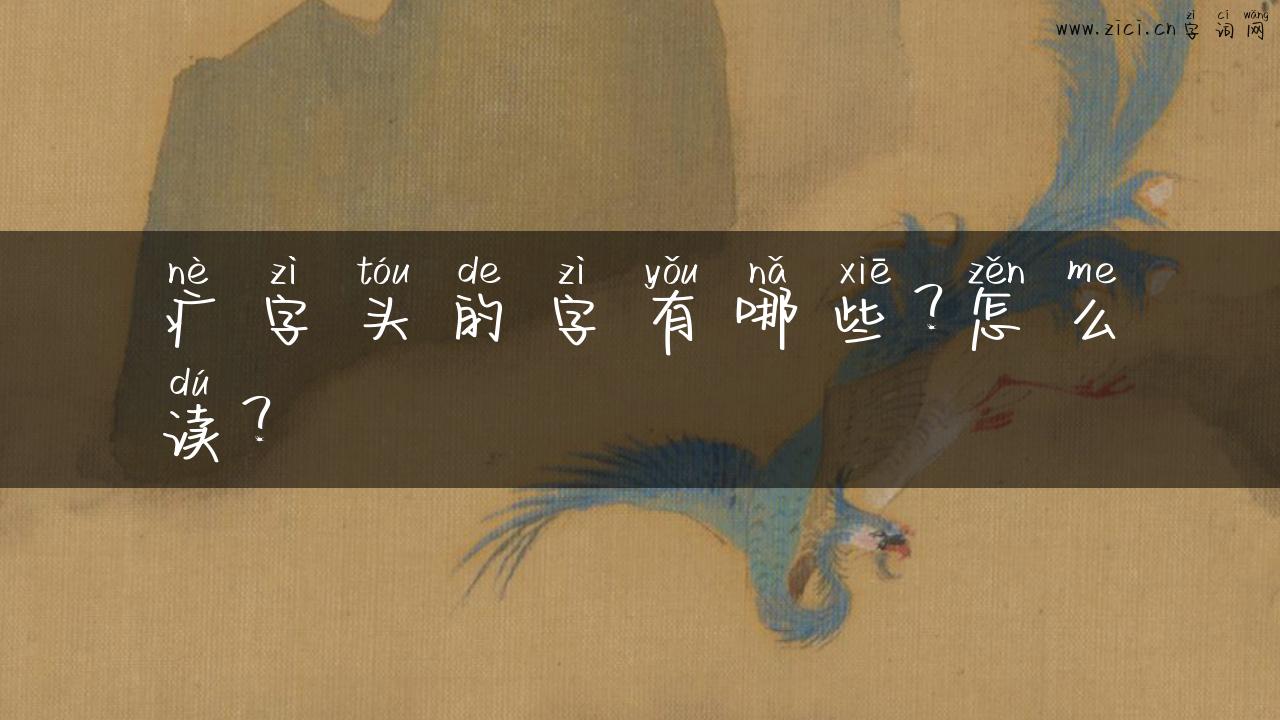 zì cí wǎng
www.zici.cn 字词网
nè zì tóu de zì yǒu nǎ xiē zěn me
疒字头的字有哪些？怎么
dú
读？